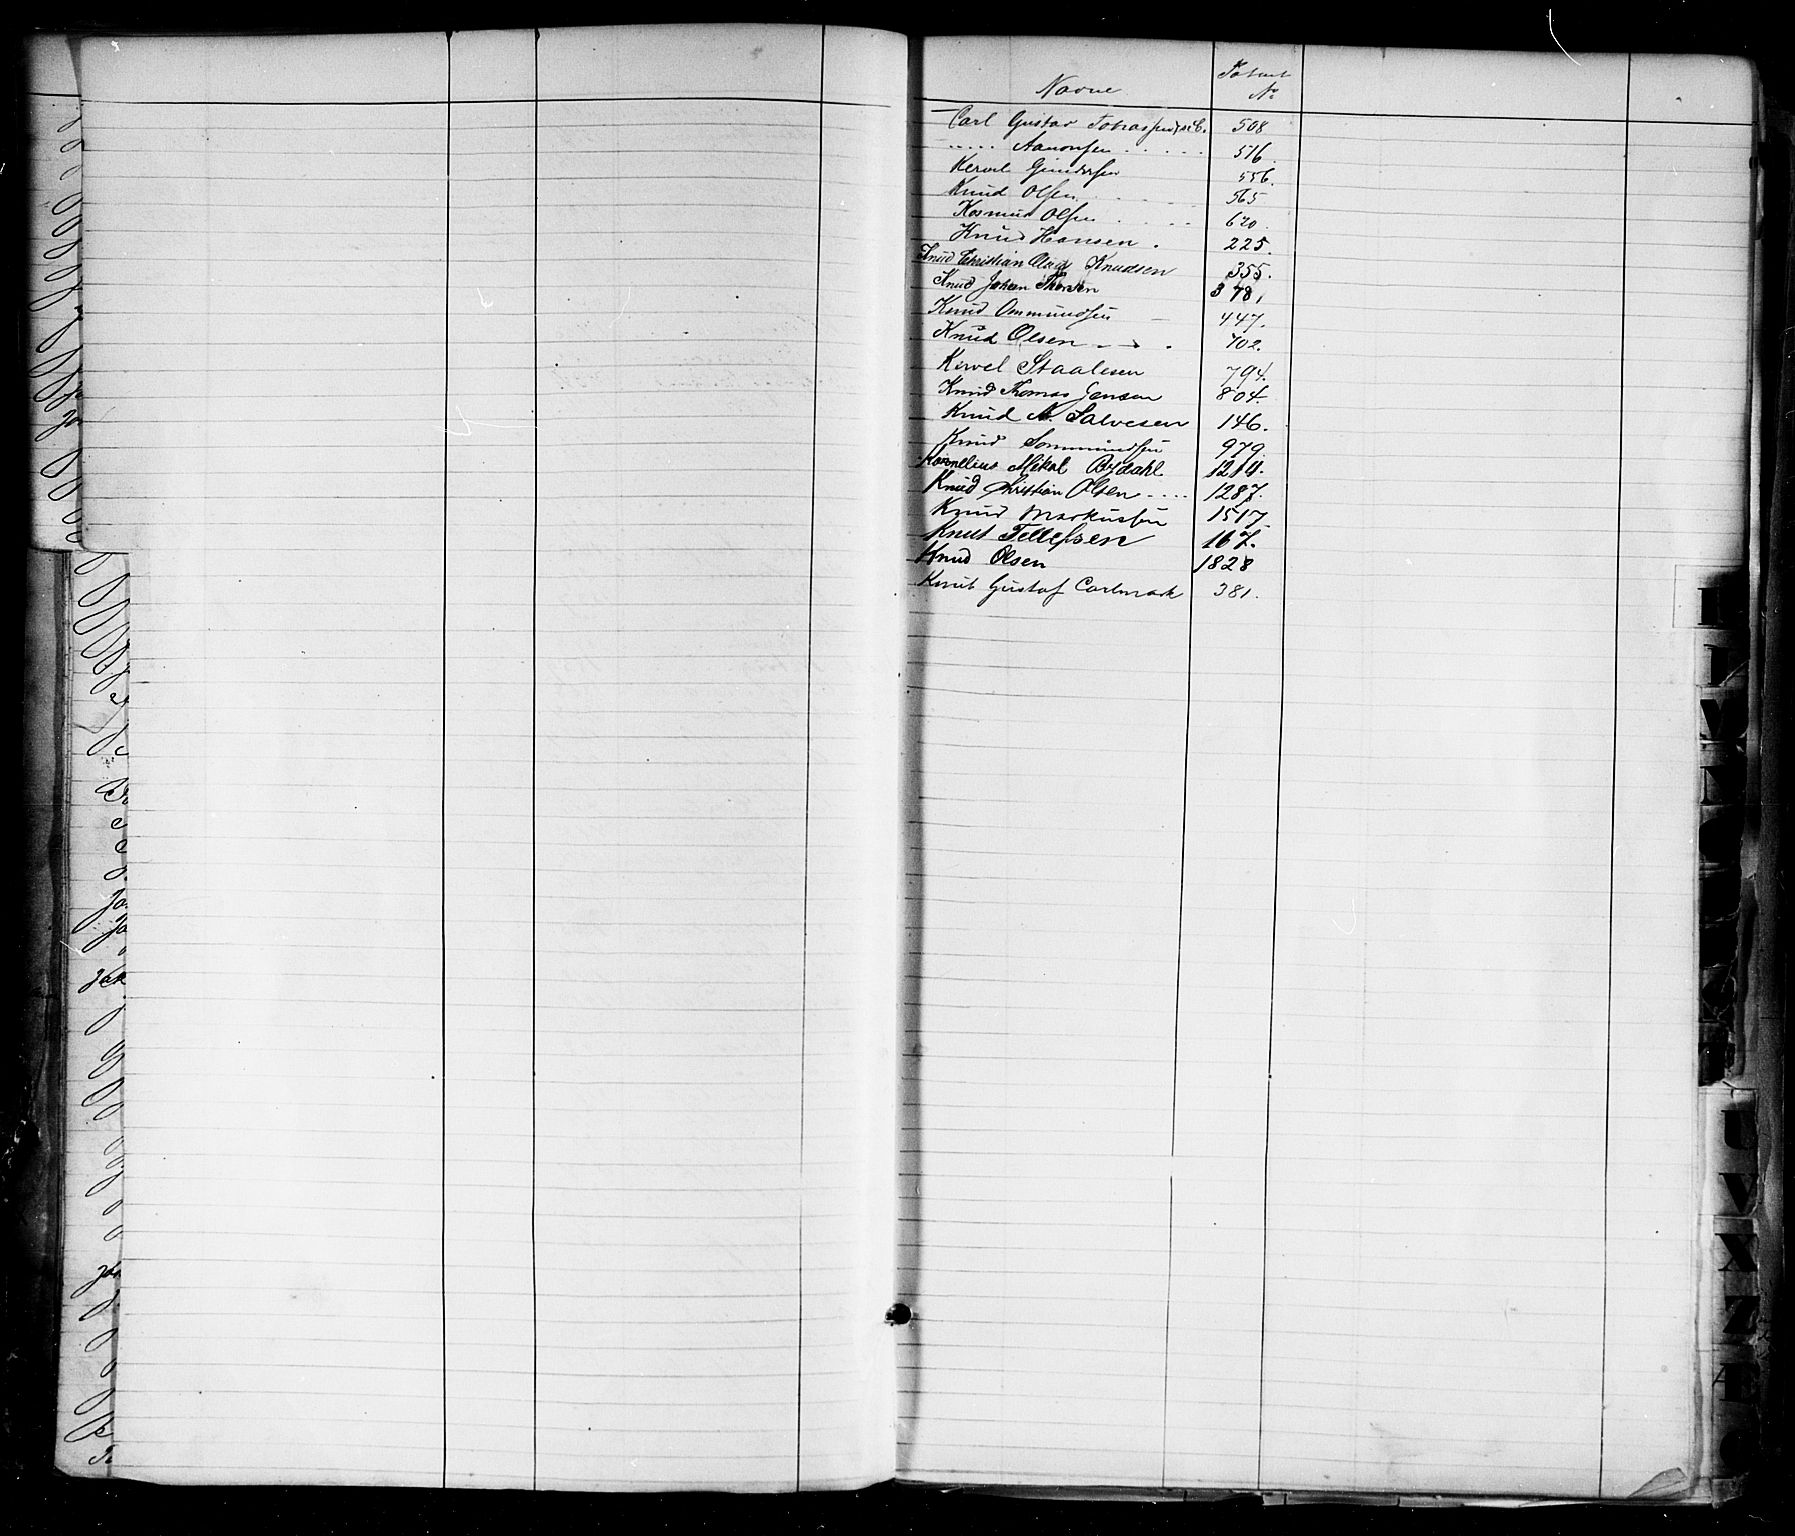 Navne Patent
No
Carl Gustav Tobias se C. 508
..... Aanonsen ..... 516.
Kervel Gundersen 556.
Knud Olsen 565
Rasmus Olsen 620.
Knud Hansen. 225.
Knud Christian Olag Knudsen 355.
Knud Johan Thorsen 378.
Knud Ommundsen 447.
Knud Olsen 702.
Kervel Staalesen 794.
Knud Thomas Jensen 804.
Knud N. Salvesen 146.
Knud Sommundsen 979.
Kornelius Mikal Bydahl 1214.
Knud Christian Olsen .... 1287.
Knud Markussen 1517.
Knut Tellefsen 167.
Knud Olsen 1828
Knut Gustaf Carlmark 381.
U
V
X
Z
Æ